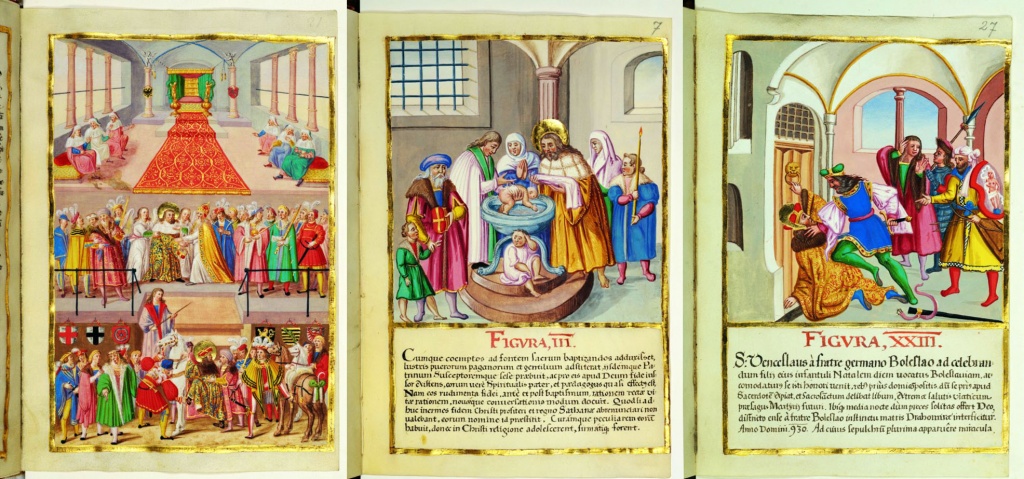 7
FIGVRA, III
Cumque coemptos ad fontem sacrum baptizandos adduxisset,
lustris puerorum paganorum et gentilium adstitent, ijsdemque Pa
trinum Susceptoremque sese præbuit, ac pro eis apud Deum fide iüs
sor existens, eorum vere Spiritualis pater, et pædagogus quasi effectus est
Nam eos rudimenta fidei, ante et post baptismum, rationem rectæ vi
tæ rationem, novæque conversationis modum docuit. Quod si ad
huc inermes fidem Christi profiteri et regno Sathanæ abrenunciari non
valebant, eorum nomine id præstitit. Curamque peculiarem eorum
habuit, donec in Christi religione adolescerent, firmatiq; forent.
27
FIGVRA, XXIII.
S. Venceslaus à fratre germano Boleslao ad celebran
dum filij eius infantuli Natalem diem uocatus Boleslauiam, ac
comodaturus se isti honori venit, rebus prius domi dispositis
Sacerdote
præsagus Martyrij futuri. Ibiq; media nocte dum preces solitas offert Deo,
districto ense à fratre Boleslao instinctu matris Drahomiræ interficitur.
Anno Domini. 930. Ad cuius sepulchrum plurima apparuêre miracula.